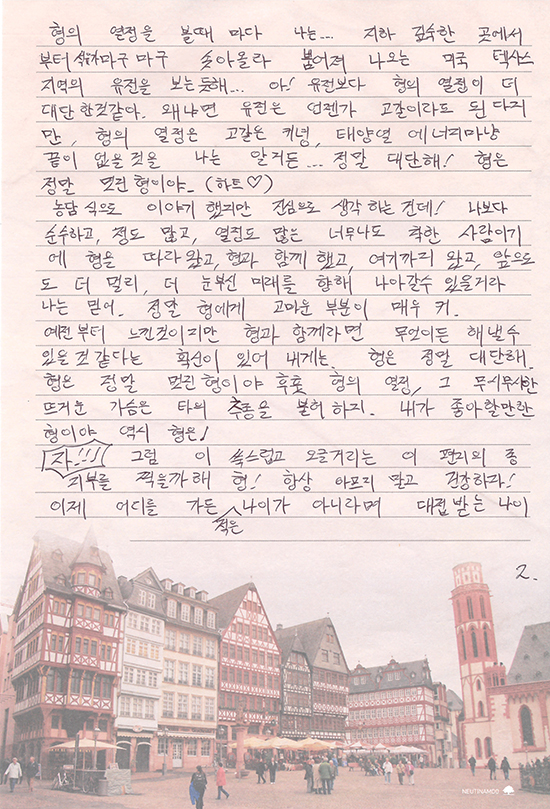 형의 열정을 볼때 마다 나는... 지하 깊숙한 곳에서
부터 마구 마구 솟아올라 뿜어져 나오는 미국 텍사스
지역의 유전을 보는듯해... 아! 유전보다 형의 열정이 더
대단한것같아. 왜냐면 유전은 언젠가 고갈이라도 된다지
만, 형의 열정은 고갈은 커녕, 태양열 에너지마냥
끝이 없을것을 나는 알거든... 정말 대단해! 형은
정말 멋진 형이야. (하트♡)
농담 식으로 이야기 했지만 진심으로 생각 하는건데! 나보다
순수하고, 정도 많고, 열정도 많은 너무나도 착한 사람이기
에 형을 따라왔고, 형과 함께 했고, 여기까지 왔고, 앞으로
도 더 멀리, 더 눈부신 미래를 향해 나아갈수 있을거라
나는 믿어. 정말 형에게 고마운 부분이 매우 커.
예전부터 느낀것이지만 형과 함께라면 무엇이든 해낼수
있을것 같다는 확신이 있어 내게는. 형은 정말 대단해.
형은 정말 멋진형이야 후훗 형의 열정, 그 무시무시한
뜨거운 가슴은 타의 추종을 불허하지. 내가 좋아할만한
형이야 역시 형은!
자!!! 그럼 이 쑥스럽고 오글거리는 이 편지의 종
지부를 찍을까해 형! 항상 아프지 말고 건강하자!
이제 어디를 가든 적은 나이가 아니라며 대접받는 나이
2.
NEUTINAMOO